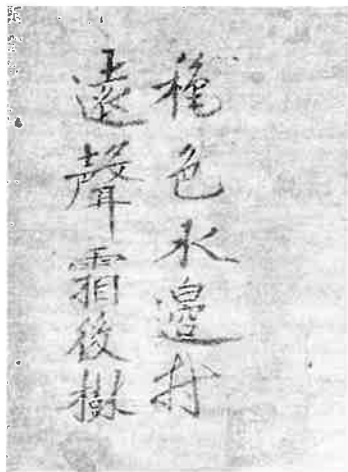 穐色水邊村
遠聲霜後樹